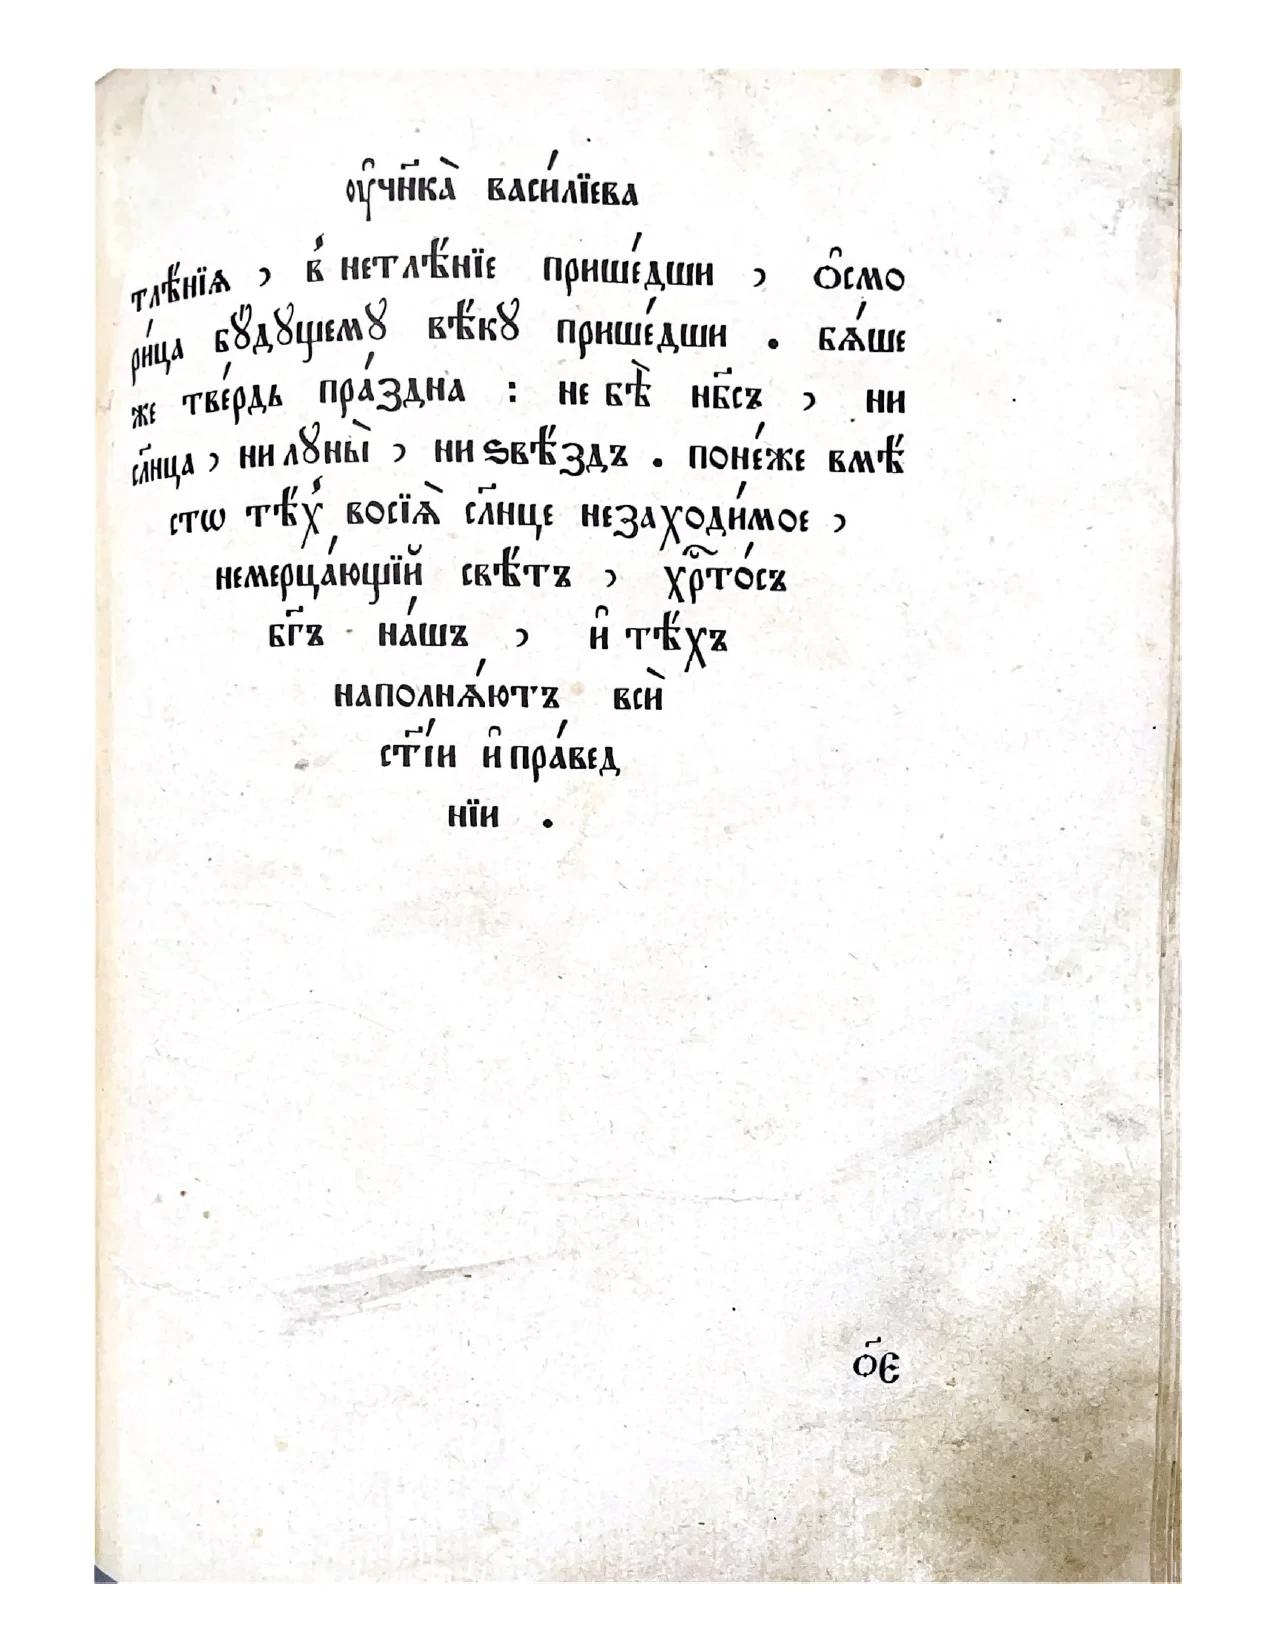 ᲂу҆чн҃ка̀ васи́лїева
тлѣ́нїѧ , в̾ нетлѣ́нїе прише́дши , ѻ҆смо
ри́ца бꙋ́дꙋщемꙋ вѣ́кꙋ прише́дши . бѧ́ше
же тве́рдь пра́здна : не бѣ̀ нб҃съ , ни
сл҃нца , ни лꙋны̀ , ни ѕвѣ́здъ . поне́же вмѣ́
стѡ тѣ́х̾ восїѧ̀ сл҃нце незаходи́мое ,
немерца́ющїй свѣ́тъ , хр҃то́съ
бг҃ъ на́шъ , и҆ тѣ́хъ
наполнѧ́ютъ всѝ
ст҃і́и и҆ пра́вед
нїи .
о҃є